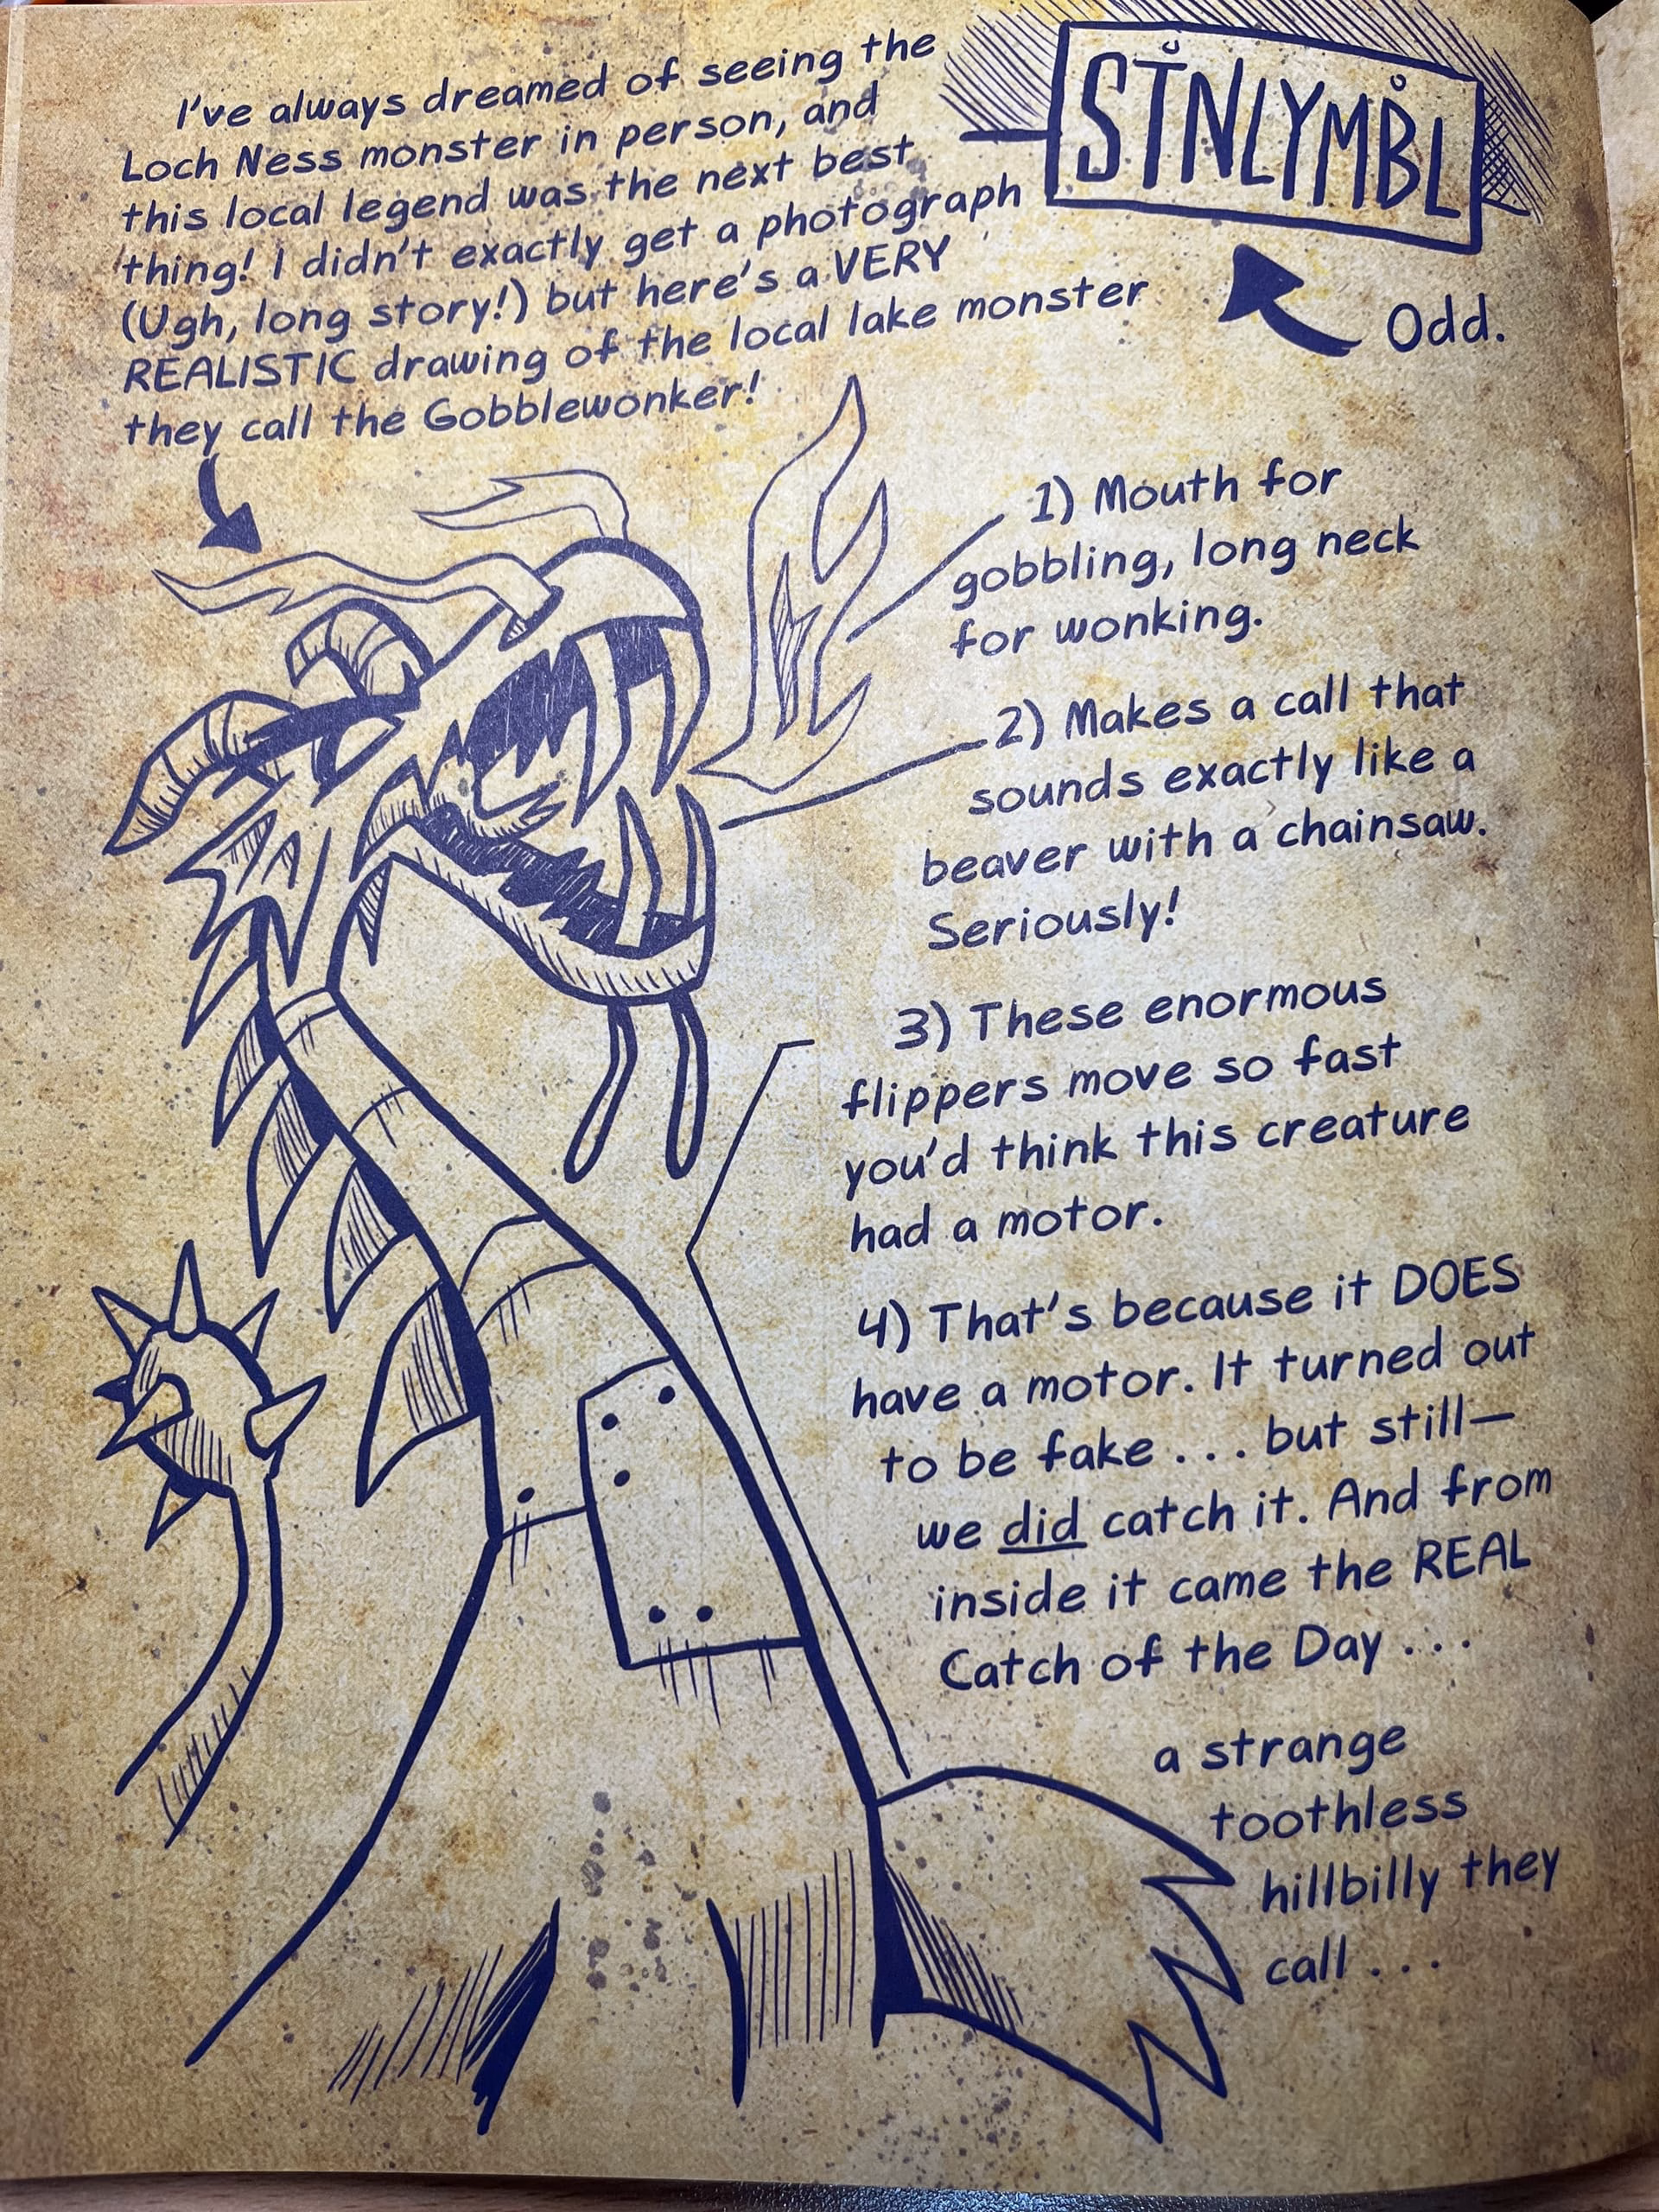 I've always dreamed of seeing the
Loch Ness monster in person, and
this local legend was the next best
thing! I didn't exactly get a photograph
(Ugh, long story!) but here's a VERY
REALISTIC drawing of the local lake monster
they call the Gobblewonker!
STNLYMBL
Odd.
1) Mouth for
gobbling, long neck
for wonking.
2) Makes a call that
sounds exactly like a
beaver with a chainsaw.
Seriously!
3) These enormous
flippers move so fast
you'd think this creature
had a motor.
4) That's because it DOES
have a motor. It turned out
to be fake . . . but still—
we did catch it. And from
inside it came the REAL
Catch of the Day . . .
a strange
toothless
hillbilly they
call . . .